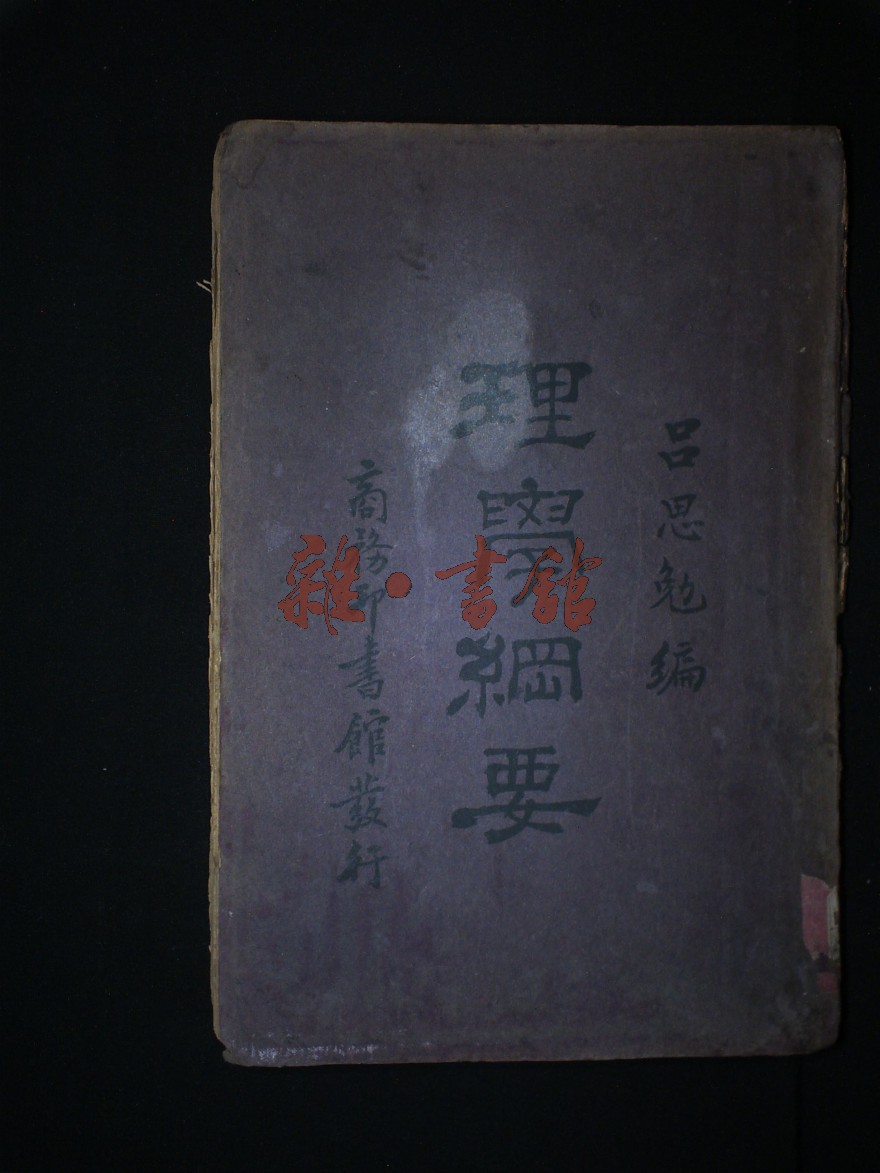 呂思勉編
理學綱要
商務印書館發行
雜·書館